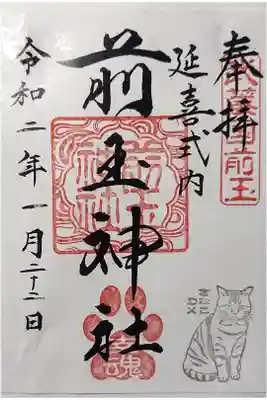 奉拝
延喜式内
前玉神社
令和二年一月二十二日
前玉神社
幸魂
きなこ